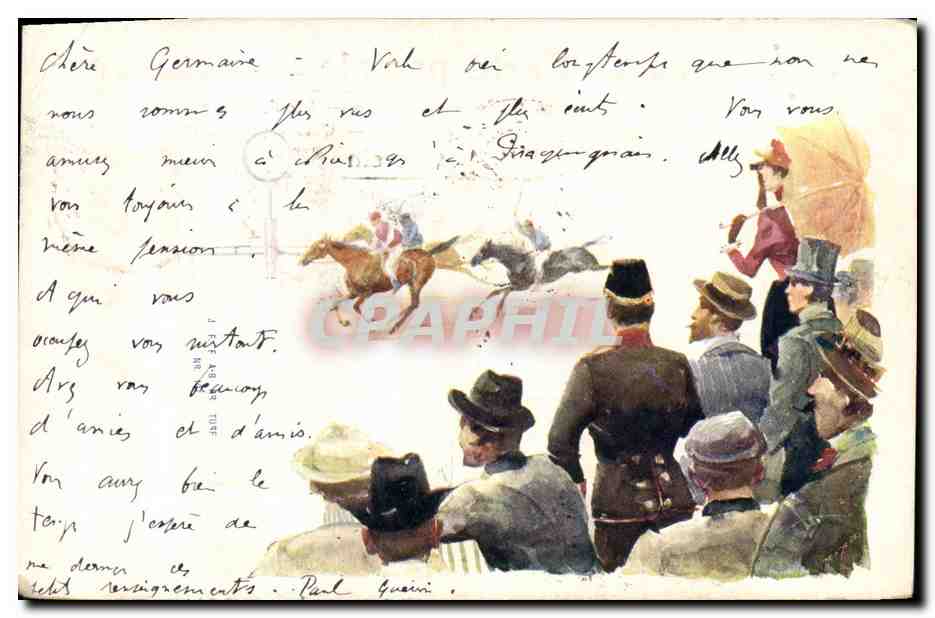 chère Germaine - Voila bien longtemps que nous ne
nous sommes plus vus et plus écrit. Vous vous
amusez mieux à qu'à Draguignan. Allez
vous toujours à la
même pension.
A quoi vous
occupez vous surtout.
Avez vous beaucoup
d'amies et d'amis.
Vous aurez bien le
temps j'espère de
me donner ces
petits renseignements. Paul Guérin.
CPAPHIL
TURF